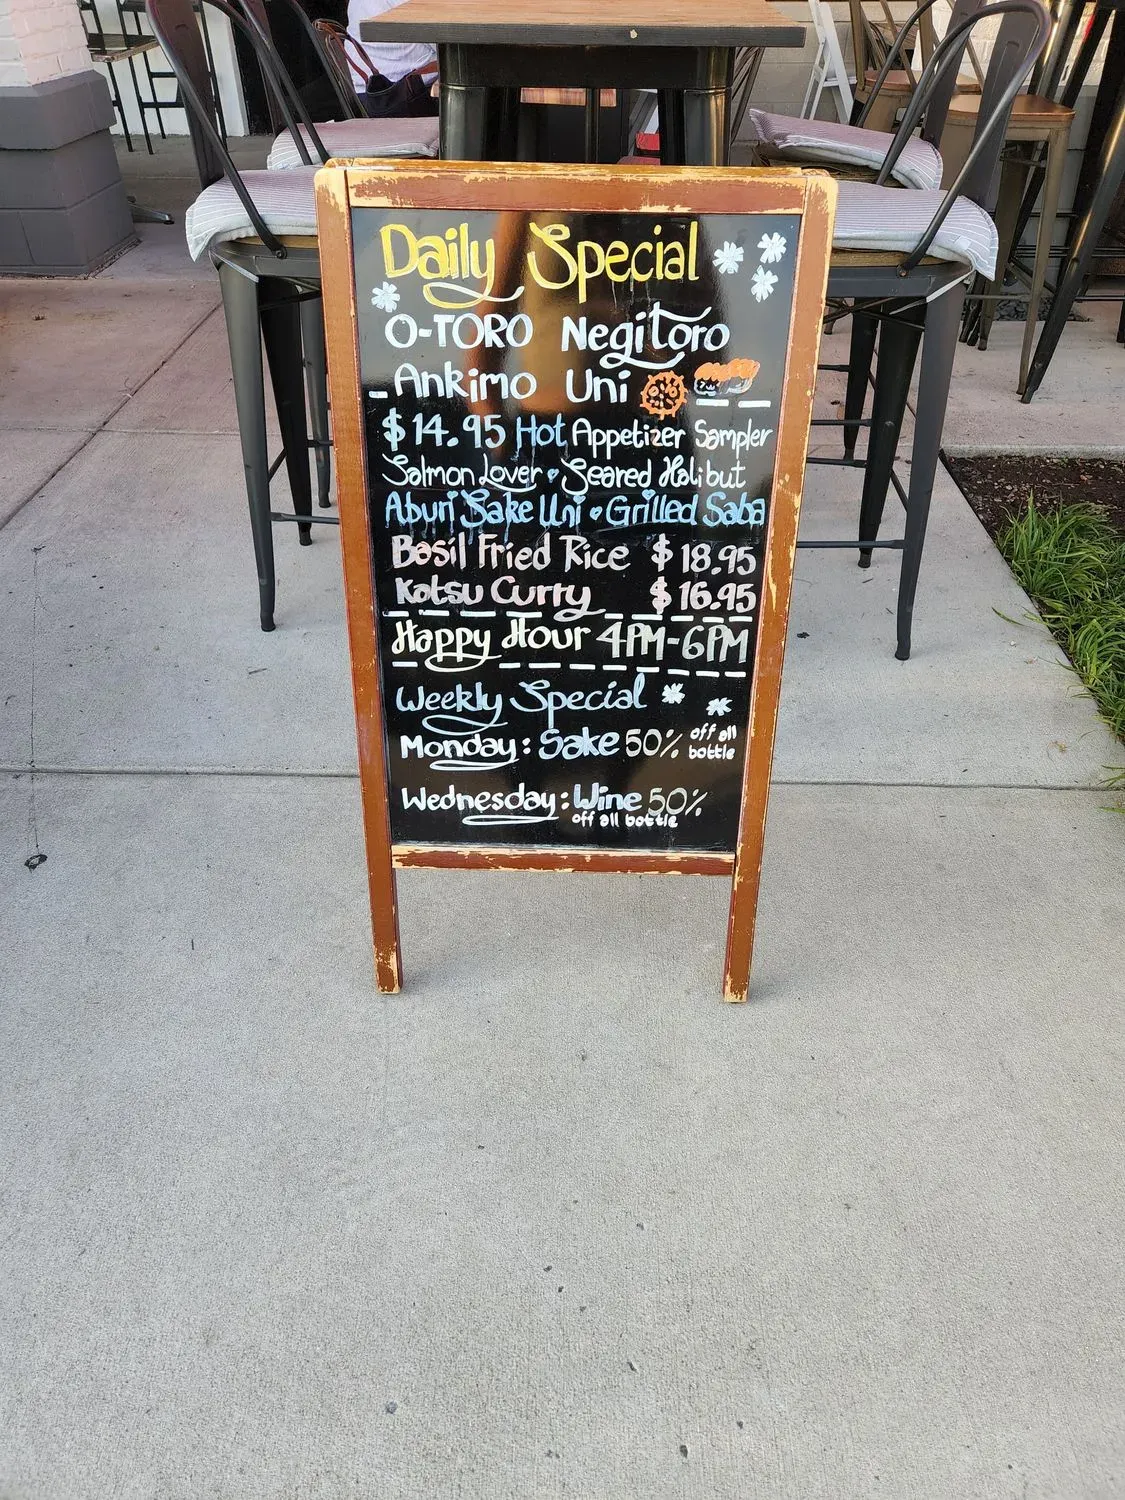 Daily Special
O-TORO Negitoro
Ankimo Uni
$14.95 Hot Appetizer Sampler
Salmon Lover • Seared Halibut
Aburi Sake Uni • Grilled Saba
Basil Fried Rice $18.95
Katsu Curry $16.95
Happy Hour 4PM-6PM
Weekly Special
Monday: Sake 50% off all bottle
Wednesday: Wine 50%
off all bottle